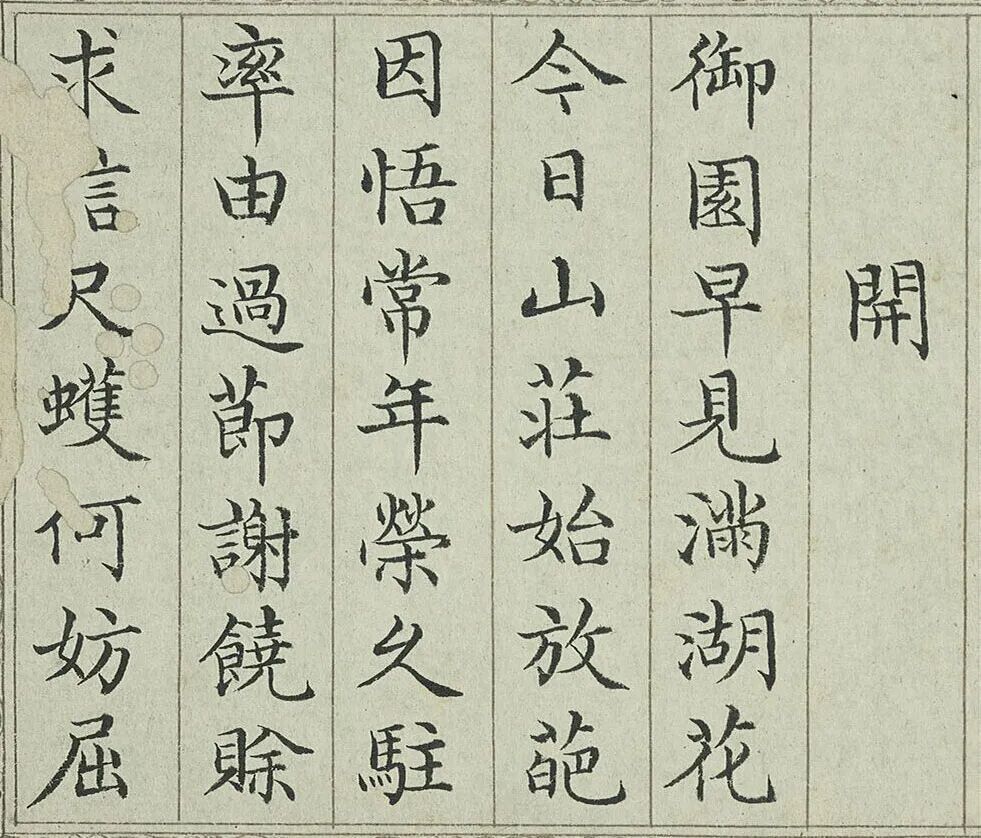 開
御園早見滿湖花
今日山荘始放葩
因悟常年榮久駐
率由過節謝饒賒
求信尺蠖何妨屈